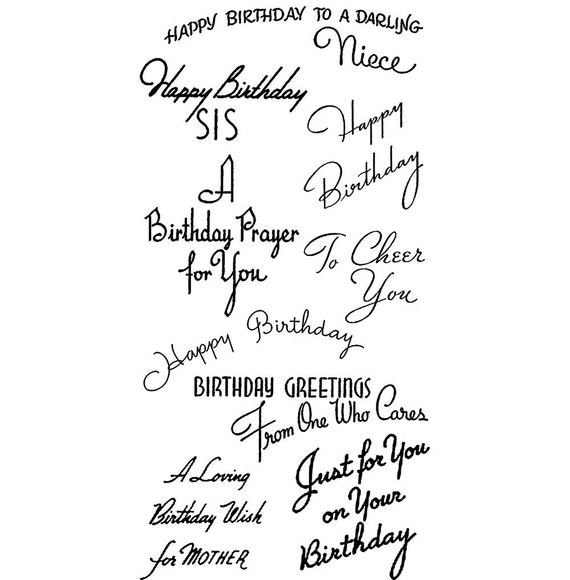 HAPPY BIRTHDAY TO A DARLING
Niece
Happy Birthday
SIS
Happy
Birthday
A
Birthday Prayer
for You
To Cheer
You
Happy Birthday
BIRTHDAY GREETINGS
From One Who Cares
A Loving
Birthday Wish
for MOTHER
Just for You
on Your
Birthday